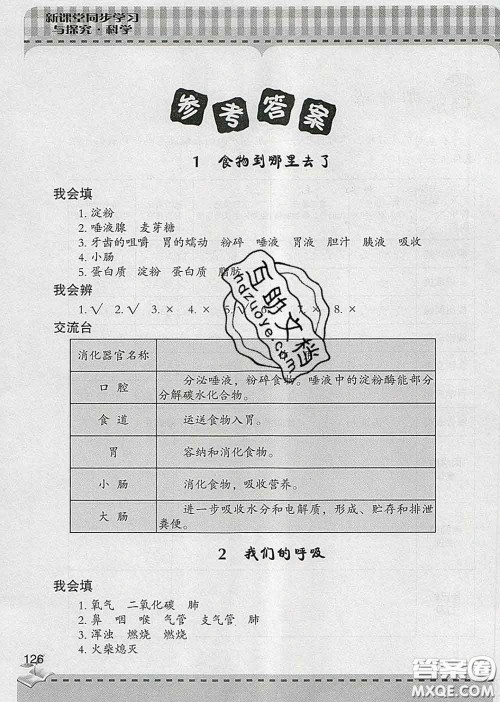 新课堂同步学习
与探究·科学
参考答案
1 食物到哪里去了
我会填
1. 淀粉
2. 唾液腺 麦芽糖
3. 牙齿的咀嚼 胃的蠕动 粉碎 唾液 胃液 胆汁 胰液 吸收
4. 小肠
5. 蛋白质 淀粉 蛋白质 脂肪
我会辨
1. √ 2. √ 3. × 4. × 5. 7. × 8. ×
交流台
消化器官名称
口腔 分泌唾液,粉碎食物。唾液中的淀粉酶能部分
分解碳水化合物。
食道 运送食物入胃。
胃 容纳和消化食物。
小肠 消化食物,吸收营养。
大肠 进一步吸收水分和电解质,形成、贮存和排泄
粪便。
2 我们的呼吸
我会填
1. 氧气 二氧化碳 肺
2. 鼻 咽 喉 气管 支气管 肺
3. 浑浊 燃烧 燃烧
4. 火柴熄灭
126
互助文档
hdzuoye.com
答案圈
MXQE.COM